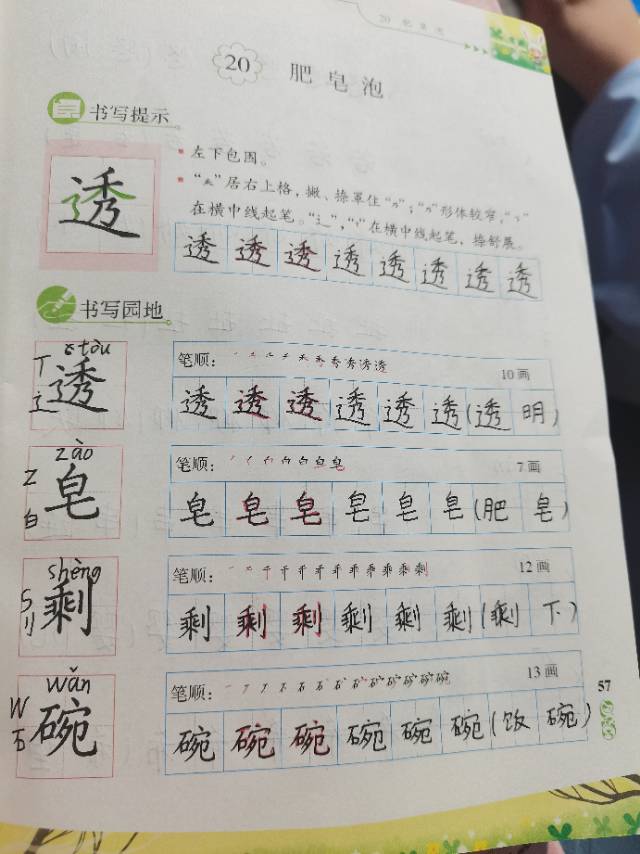 20 肥皂泡
20 肥皂泡
书写提示
透
左下包围。
“禾”居右上格，撇、捺罩住“乃”；“乃”形体较窄，“㇋”
在横中线起笔。“辶”，“丶”在横中线起笔，捺舒展。
透 透 透 透 透 透 透 透
书写园地
tòu
T
辶
透
笔顺： 10画
透 透 透 透 透 透(透 明)
zào
Z
白
皂
笔顺： 7画
皂 皂 皂 皂 皂 皂(肥 皂)
shèng
S
刂
剩
笔顺： 12画
剩 剩 剩 剩 剩 剩(剩 下)
wǎn
W
石
碗
笔顺： 13画
碗 碗 碗 碗 碗 碗(饭 碗)
57